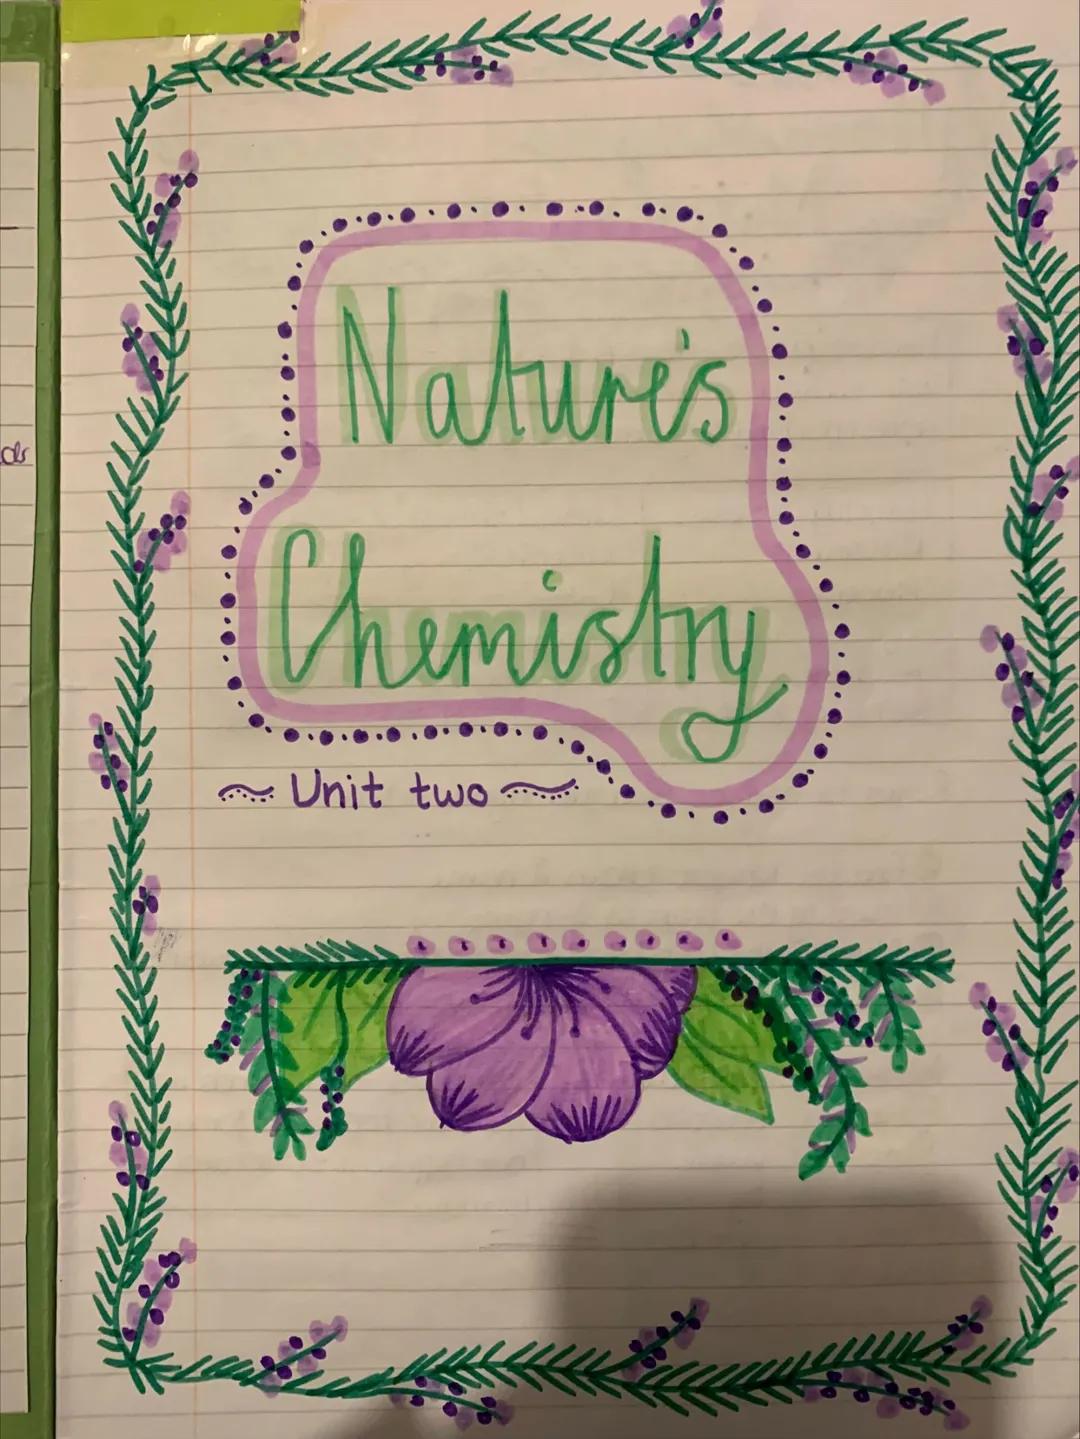 Nature's
Chemistry
Unit two